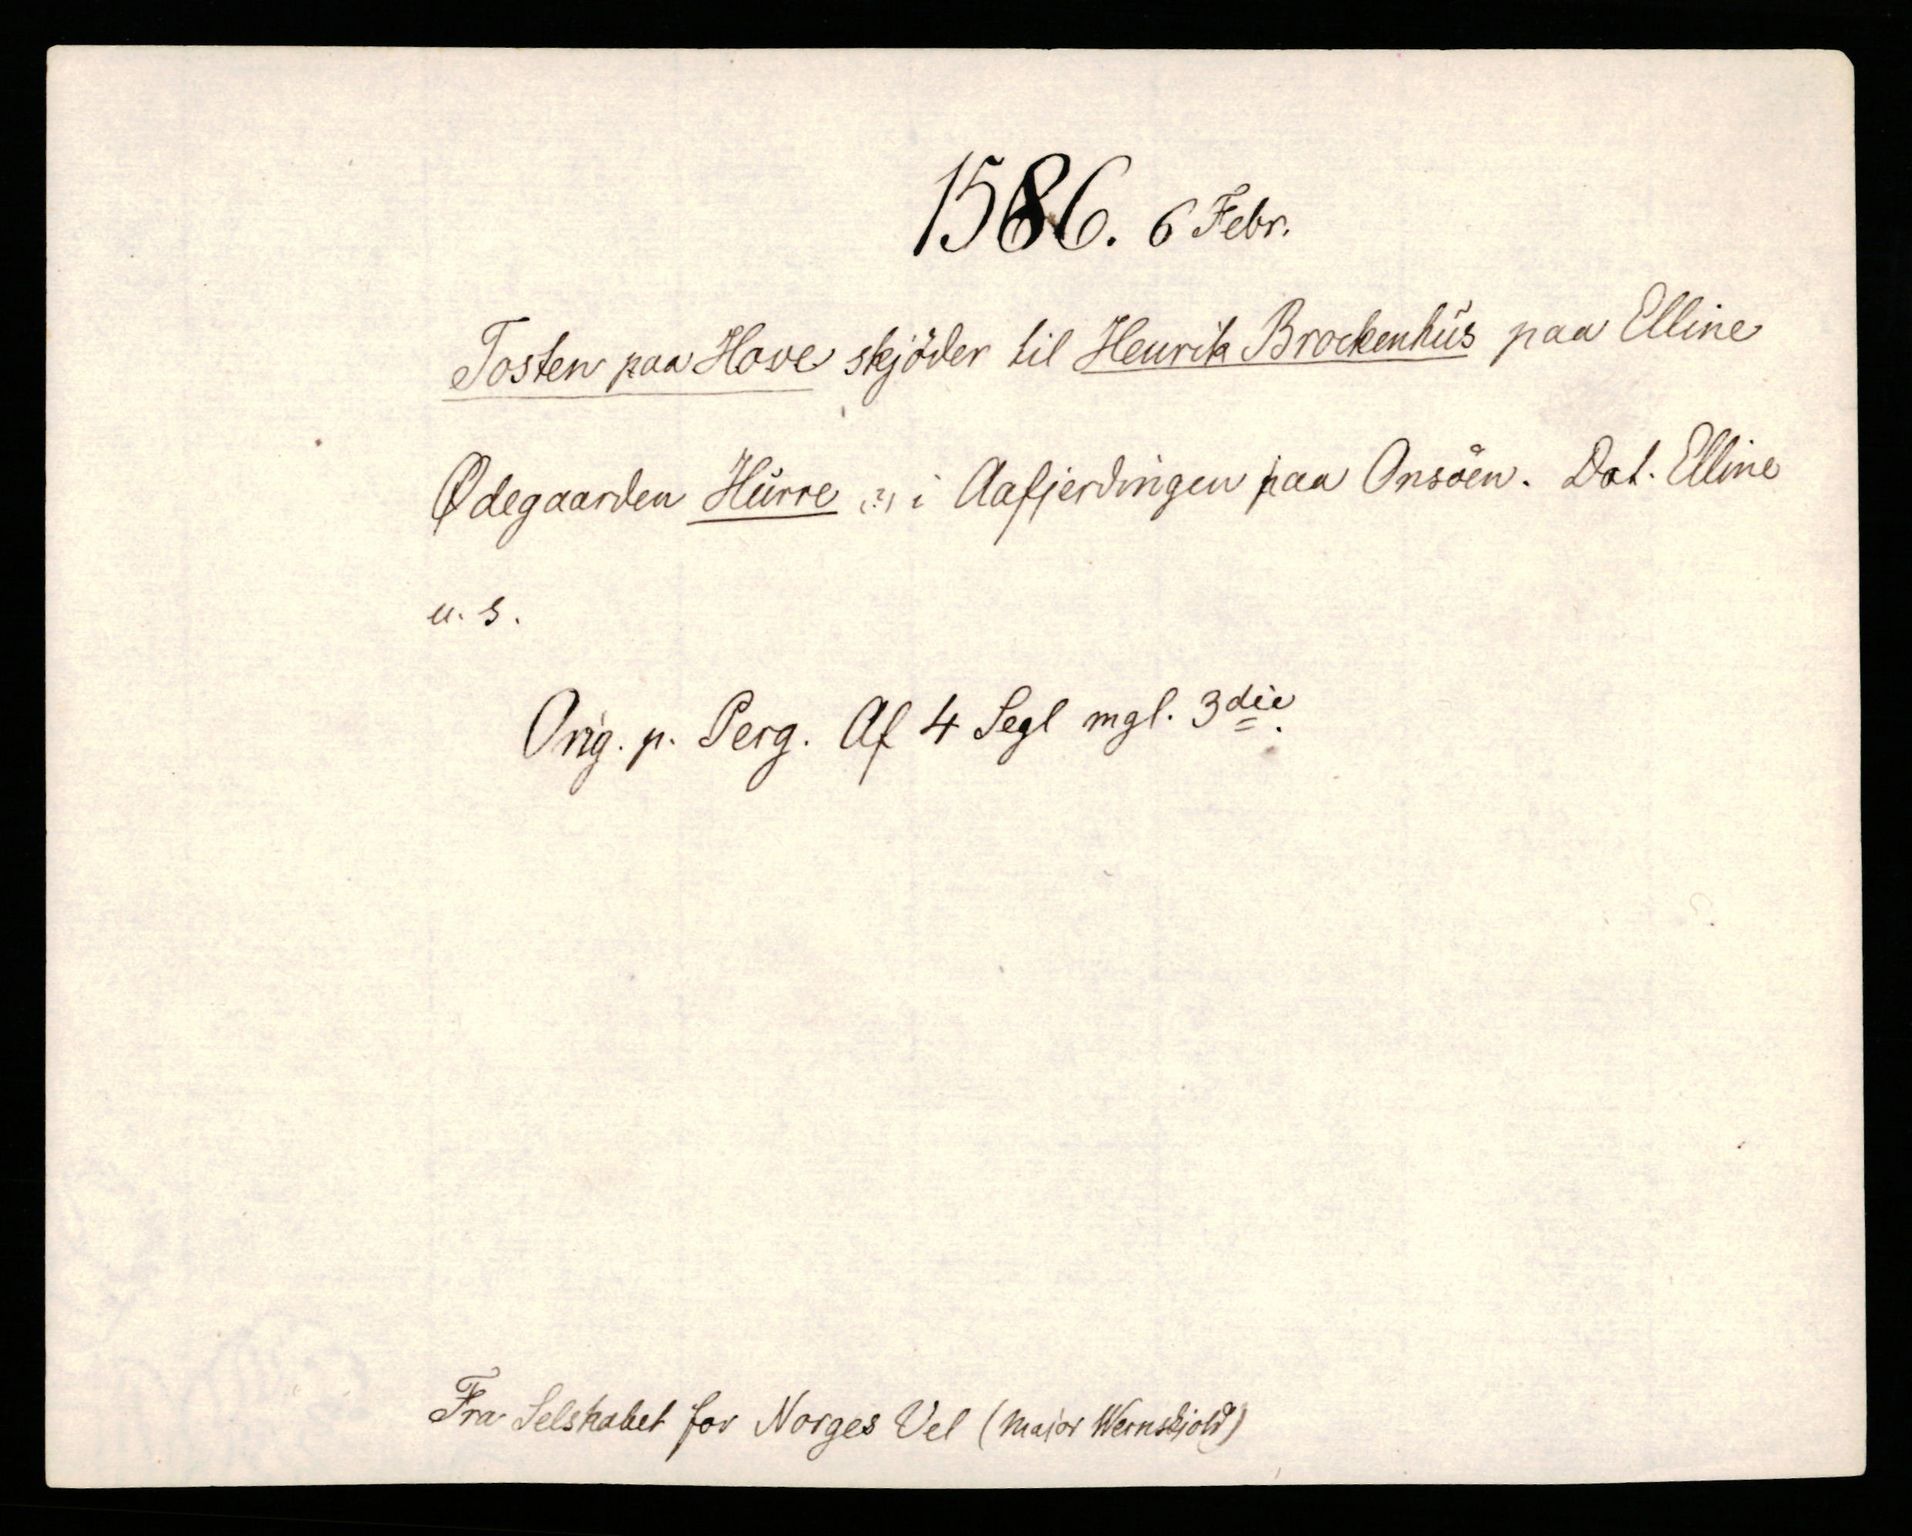 1586. 6 Febr.
Tosten paa Hove skjöder til Henrik Brockenhüs paa Elline
Ødegaarden Hürre (?) i Aafjerdingen paa Onsöen. Dat. Elline
u. s.
Orig. p. Perg. Af 4 Segl mgl. 3die.
Fra Selskabet for Norges Vel (Major Wernskjold)